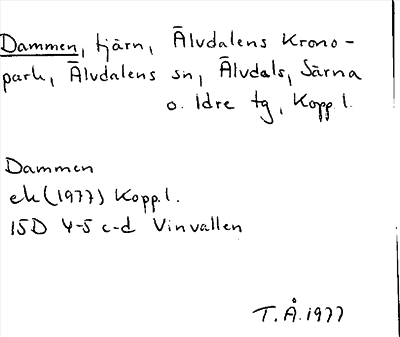 Dammen, tjärn, Älvdalens Krono-
park, Älvdalens sn, Älvdals, Särna
o. Idre tg, Kopp. l.
Dammen
ek (1977) Kopp. l.
15D 4-5 c-d Vinvallen
T.Å. 1977